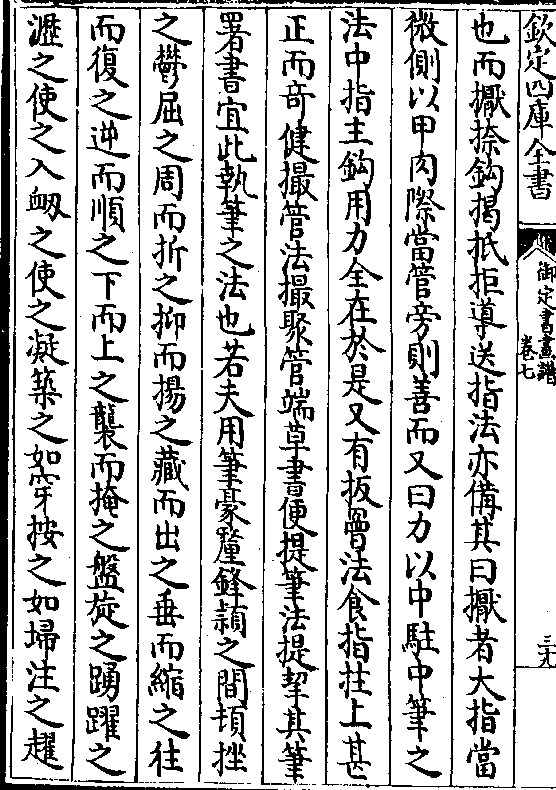 欽定四庫全書
御定書畫譜
卷七
三十九
也而擫捺鈎揭抵拒導送指法亦備其曰擫者大指當
微側以甲肉際當管旁則善而又曰力以中駐中筆之
法中指主鈎用力全在於是又有扳罾法食指拄上甚
正而竒健撮管法撮聚管端草書便提筆法提挈其筆
署書宜此執筆之法也若夫用筆豪釐鋒頴之間頓挫
之鬱屈之周而折之抑而揚之藏而出之垂而縮之往
而復之逆而順之下而上之襲而掩之盤旋之踴躍之
瀝之使之入衂之使之凝築之如穿按之如埽注之趯